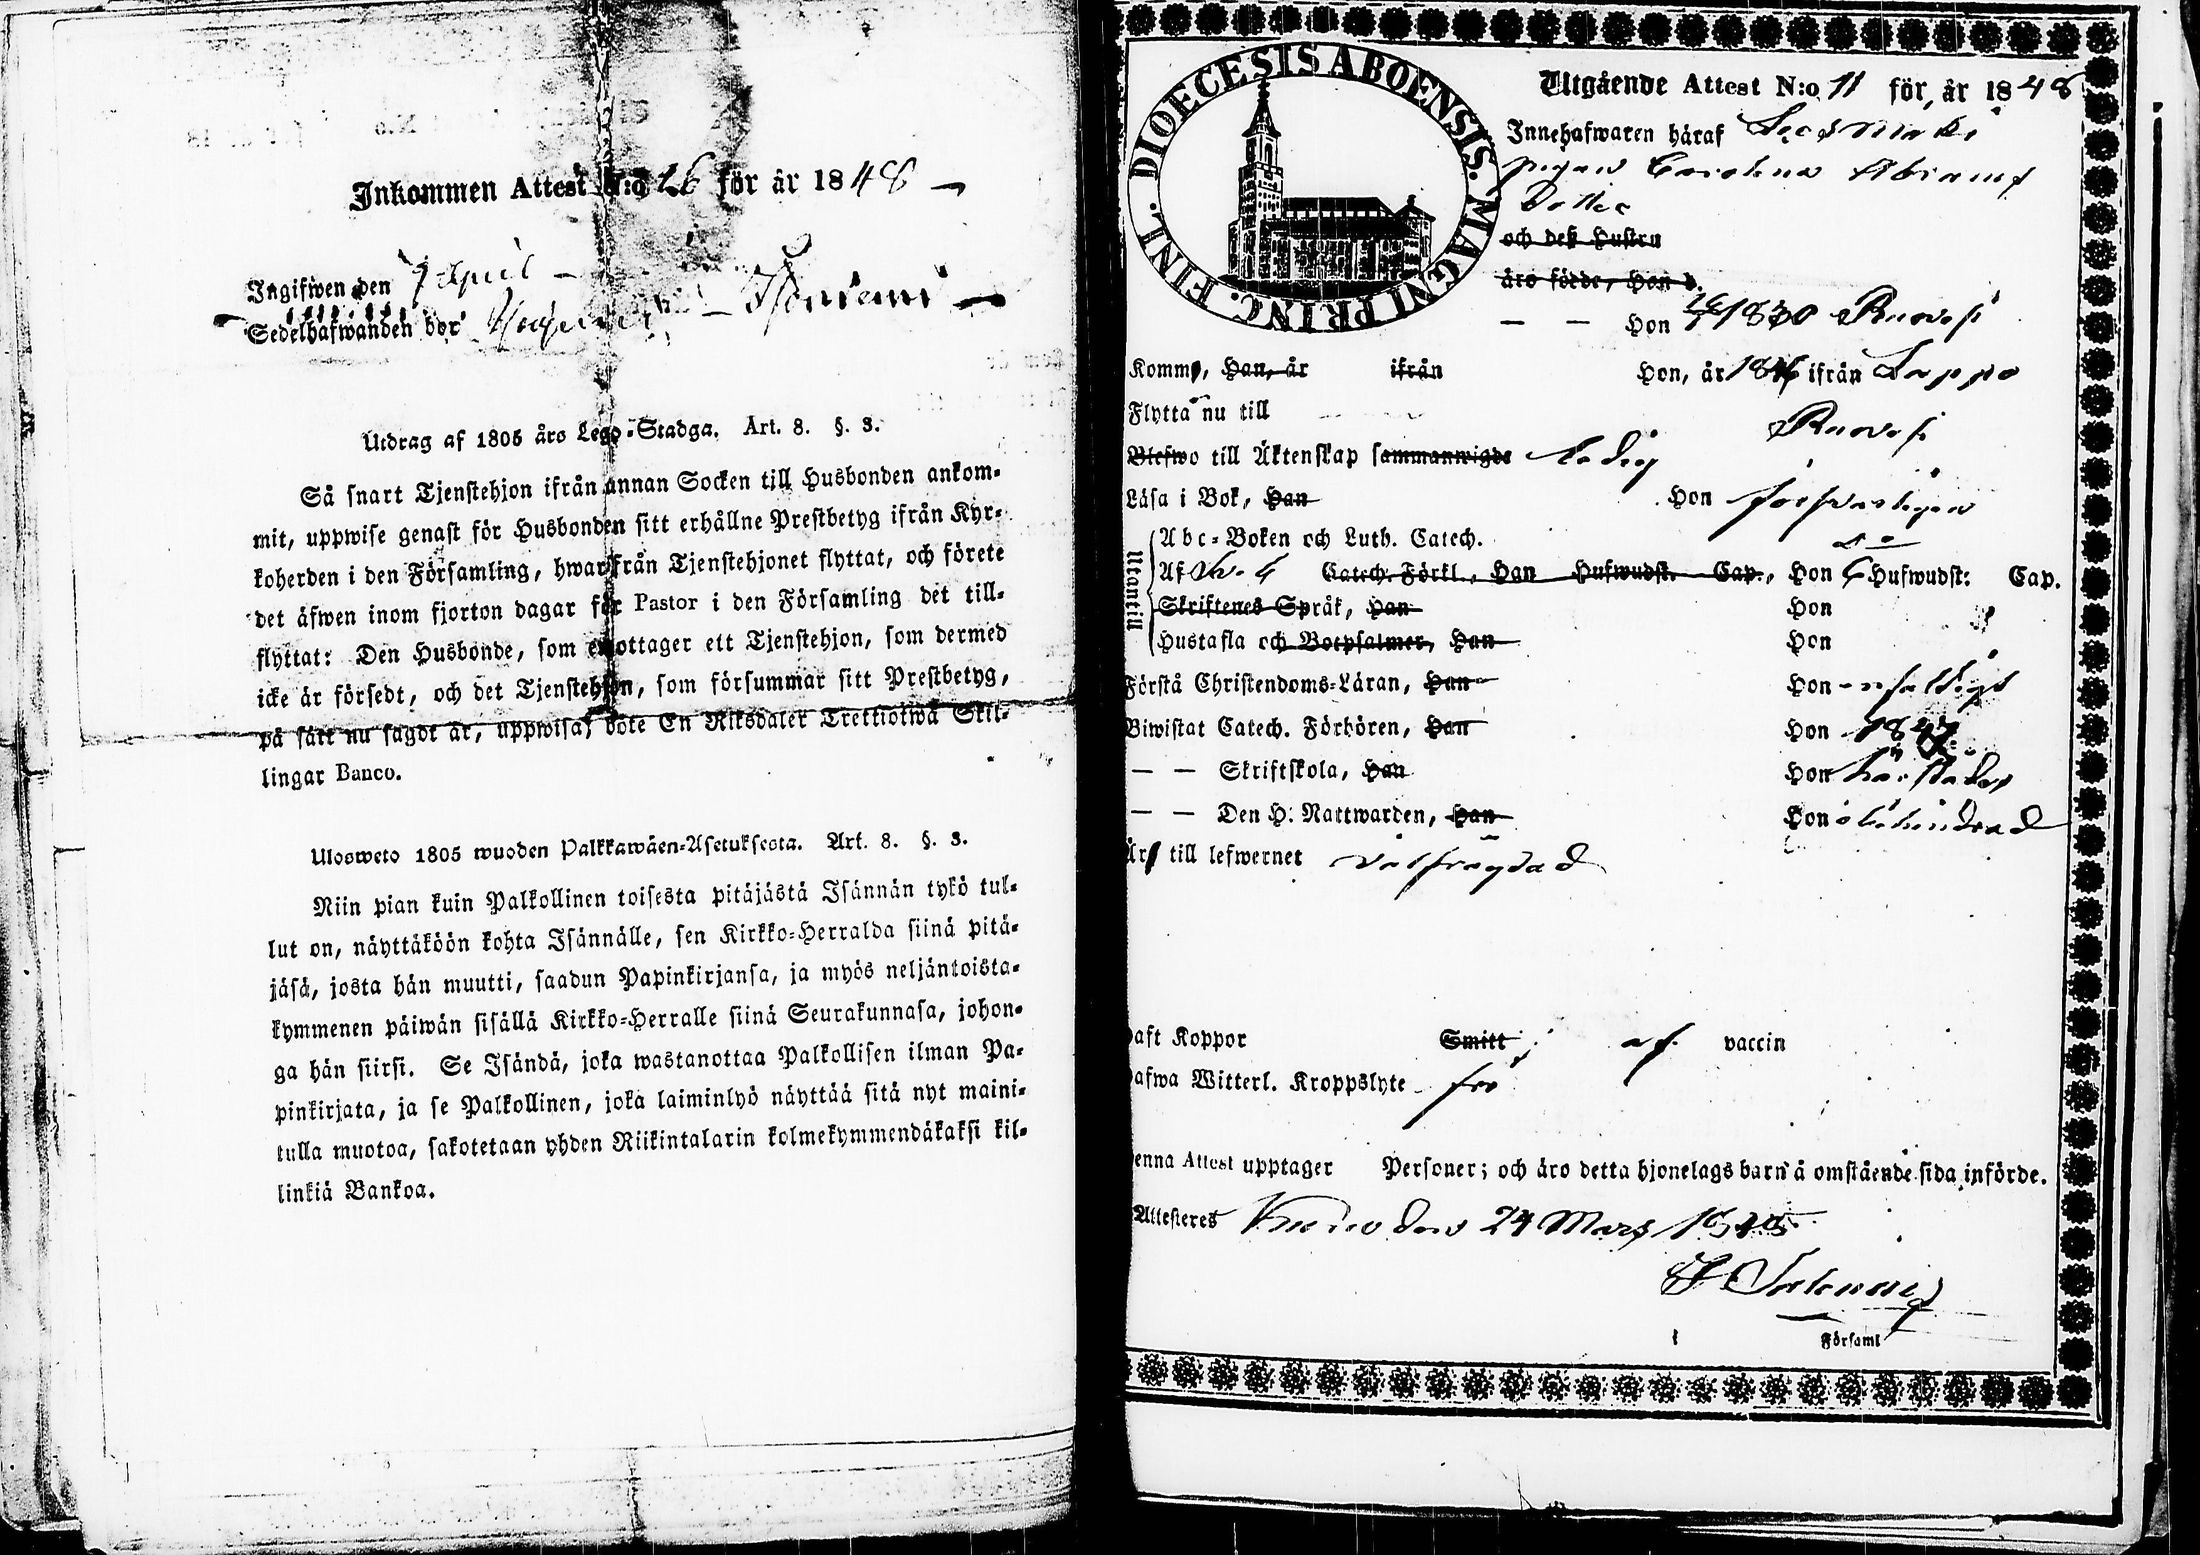 Inkommen Attest N:o 26 för år 1848
Ingifwen den 9 April
Sedelhafwanden bor
Utdrag af 1805 års Lego-Stadga. Art. 8. §. 3.
Så snart Tjenstehjon ifrån annan Socken till Husbonden ankom-
mit, uppwise genast för Husbonden sitt erhållne Prestbetyg ifrån Kyr-
koherden i den Församling, hwarifrån Tjenstehjonet flyttat, och förete
det äfwen inom fjorton dagar för Pastor i den Församling det till-
flyttat: Den Husbonde, som emottager ett Tjenstehjon, som dermed
icke är försedt, och det Tjenstehjon, som försummar sitt Prestbetyg,
på sätt nu sagdt är, uppwisa, böte En Riksdaler Trettiotwå Skil-
lingar Banco.
Ulosweto 1805 wuoden Palkkawäen-Asetuksesta. Art. 8. §. 3.
Niin pian kuin Palkollinen toisesta pitäjästä Isännän tykö tul-
lut on, näyttäköön kohta Isännälle, sen Kirkko-Herralda siinä pitä-
jäsä, josta hän muutti, saadun Papinkirjansa, ja myös neljäntoista-
kymmenen päiwän sisällä Kirkko-Herralle siinä Seurakunnasa, johon-
ga hän siirsi. Se Isändä, joka wastanottaa Palkollisen ilman Pa-
pinkirjata, ja se Palkollinen, joka laiminlyö näyttää sitä nyt maini-
tulla muotoa, sakotetaan yhden Riikintalarin kolmekymmendäkaksi kil-
linkiä Bankoa.
DIOECESIS ABOENSIS. MAGNI PRINC. FINL.
Utgående Attest N:o 11 för år 1848
Innehafwaren häraf
pigan Carolina Abrams
Dotter
och deß Hustru
äro födde, Han d.
— — Hon 1830 Ruovesi
Komm, Han, år ifrån Hon, år 1846 ifrån Lappo
Flytta nu till Ruovesi
Blefwo till Äktenskap sammanwigde Ledig
Läsa i Bok, Han Hon försvarligen
Utantill
Abc-Boken och Luth. Catech.
Af Sv. Catech. Förkl., Han Hufwudst. Cap., Hon 6 Hufwudst: Cap.
Skriftenes Språk, Han Hon
Hustafla och Botpsalmer, Han Hon
Förstå Christendoms-Läran, Han Hon enfaldigt
Biwistat Catech. Förhören, Han Hon 1847
— — Skriftskola, Han Hon härstädes
— — Den H. Nattwarden, Han Hon obehindrad
Är till lefwernet välfrägdad
Haft Koppor Smitt af vaccin
Hafwa Witterl. Kroppslyte fri
Denna Attest upptager Personer; och äro detta hjonelags barn å omstående sida införde.
Attesteres den 24 Mars 1848
Församl